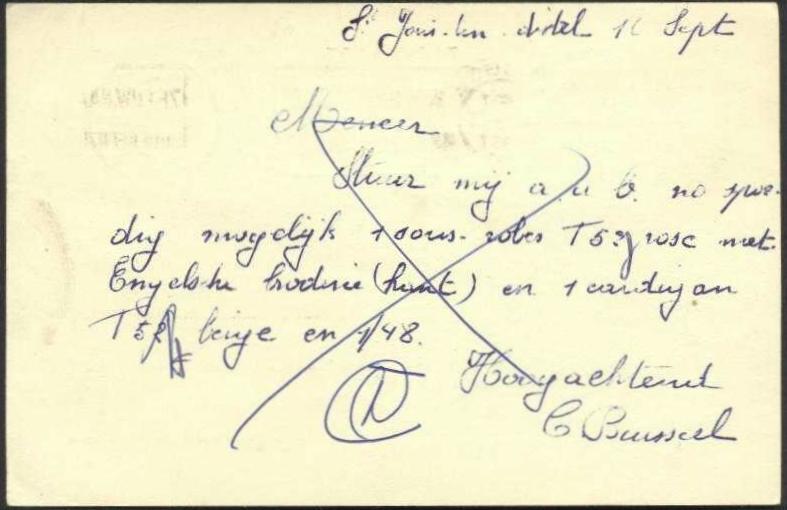 St Joris-ten-distel 16 Sept
Meneer
Stuur mij a.u.b. zo spoe-
dig mogelijk 1 sous-robes T52 rose met
Engelshe broderie (kant) en 1 cardigan
T52 beige en 1/48.
Hoogachtend
C Bussel